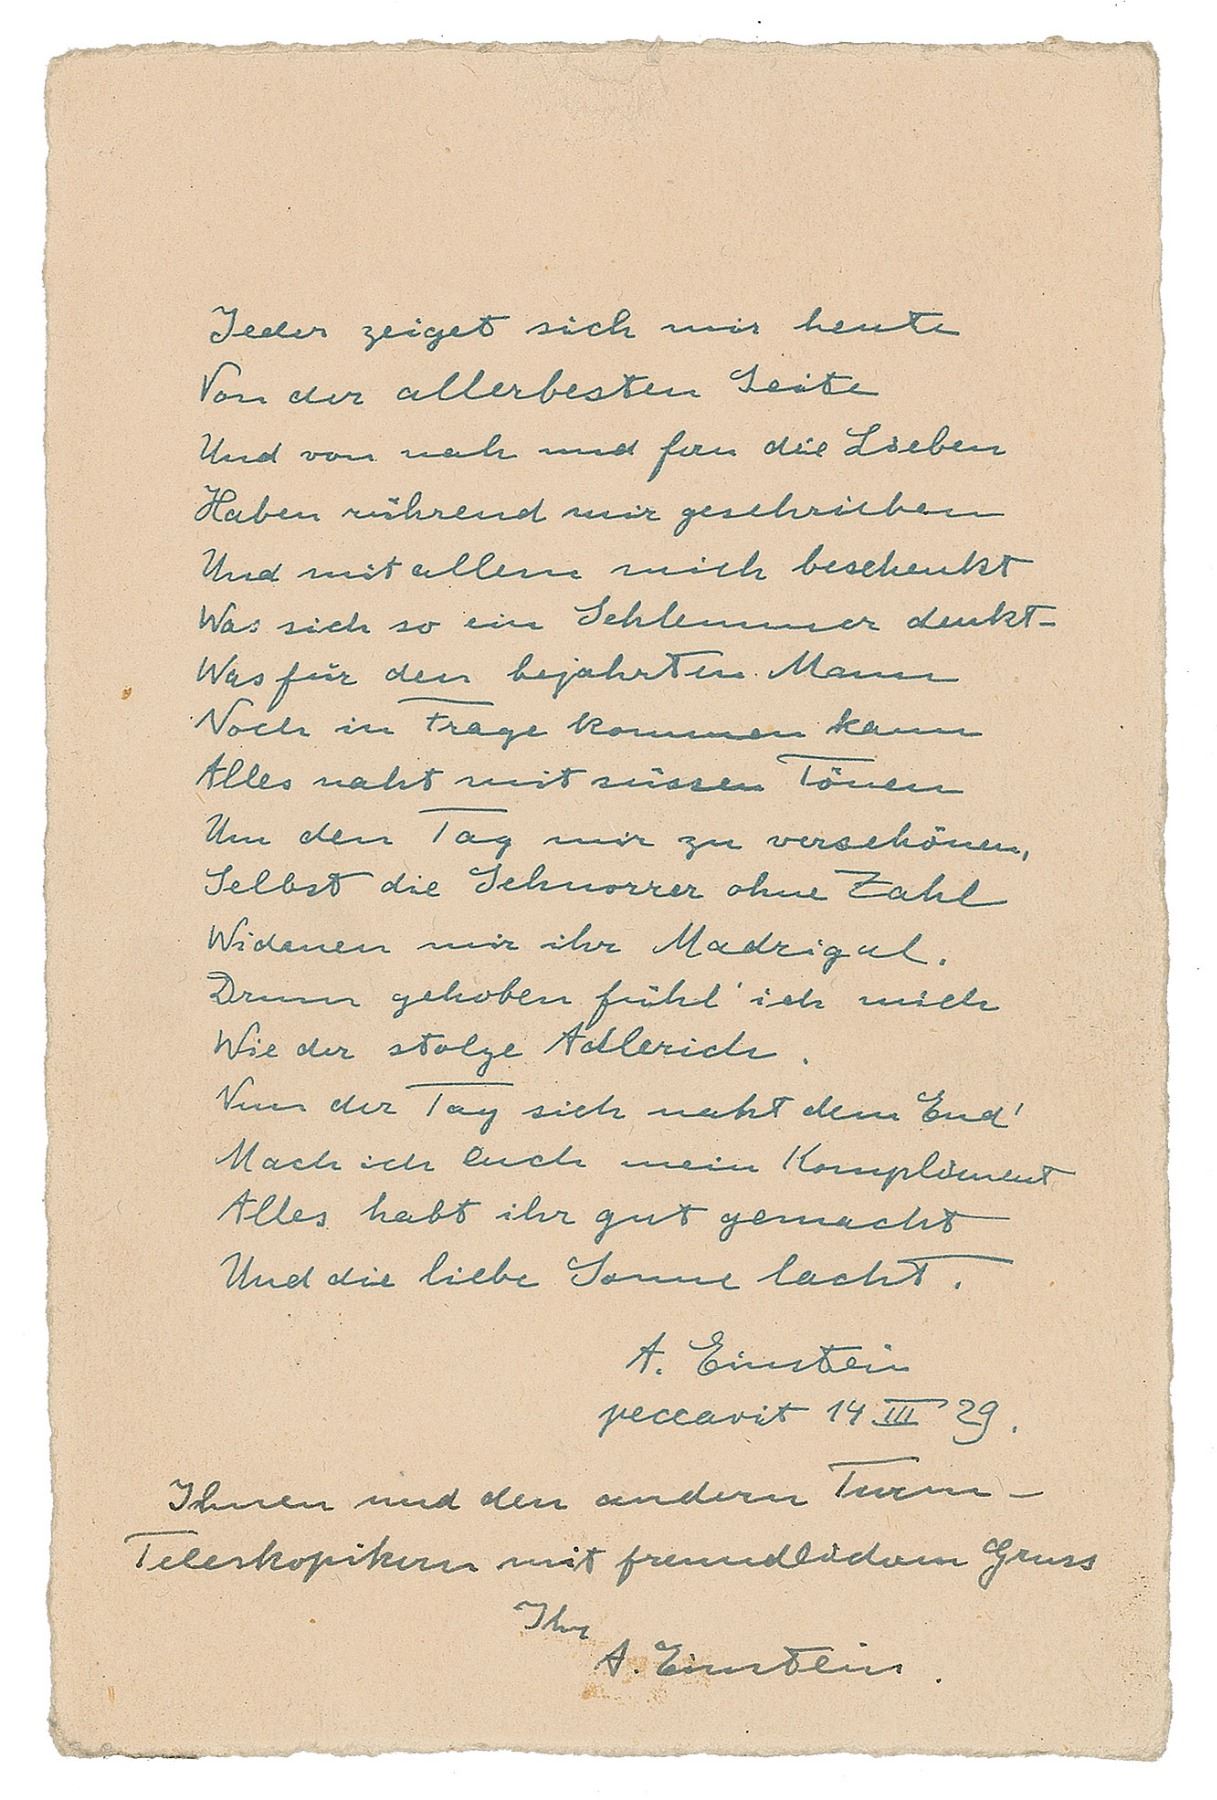 Jeder zeiget sich mir heute
Von der allerbesten Seite
Und von nah und fern die Lieben
Haben rührend mir geschrieben
Und mit allem mich beschenkt
Was sich so ein Schlemmer denkt –
Was für den bejahrten Mann
Noch in Frage kommen kann
Alles naht mit süssen Tönen
Um den Tag mir zu verschönen,
Selbst die Schnorrer ohne Zahl
Widmen mir ihr Madrigal.
Drum gehoben fühl' ich mich
Wie der stolze Adlerich.
Nun der Tag sich naht dem End'
Mach ich Euch mein Kompliment
Alles habt ihr gut gemacht
Und die liebe Sonne lacht.
A. Einstein
peccavit 14 III 29.
Ihnen und den andern Turm-
Teleskopikern mit freundlichem Gruss
Ihr
A. Einstein.